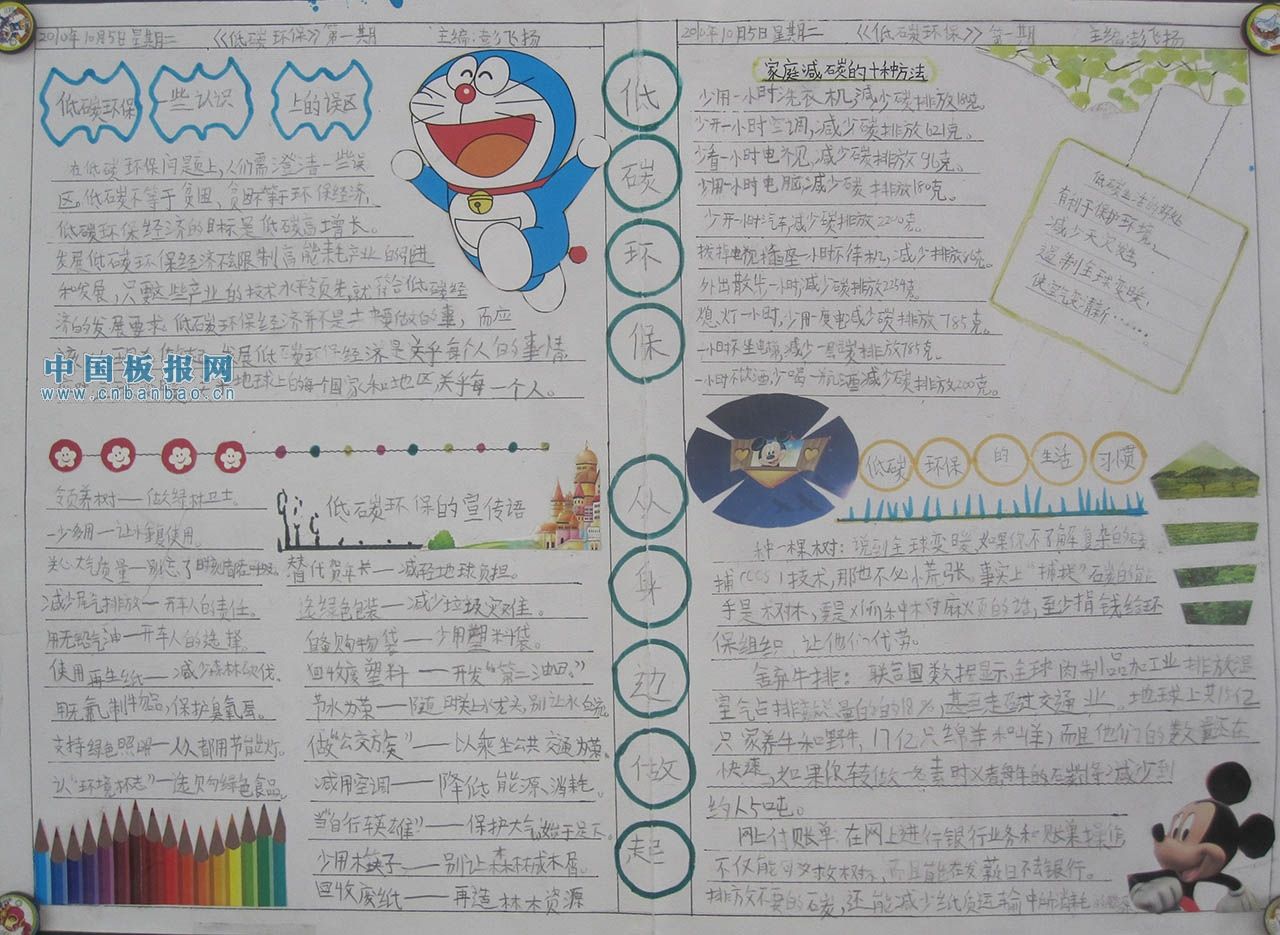 2010年10月5日星期二 《低碳环保》第一期 主编:彭飞扬
低碳环保 一些认识 上的误区
在低碳环保问题上,人们需澄清一些误
区。低碳不等于贫困,贫困不等于环保经济,
低碳环保经济的目标是低碳高增长。
发展低碳环保经济不会限制高能耗产业的引进
和发展,只要这些产业的技术水平领先,就符合低碳经
济的发展要求。低碳环保经济并不是
发展低碳环保经济是关乎每个人的事情
地球上的每个国家和地区关乎每一个人。
中国板报网
www.cnbanbao.cn
低碳环保的宣传语
领养树——做绿林卫士。
一水多用——让水重复使用。
关心大气质量——别忘了时刻都在呼吸。
减少尾气排放——开车人的责任。
用无铅气油—开车人的选择。
使用再生纸——减少森林砍伐。
用无氟制品,保护臭氧层。
支持绿色照明—人人都用节能灯。
认"环境标志"—选购绿色食品。
替代贺年卡——减轻地球负担。
选绿色包装——减少垃圾灾难。
自备购物袋——少用塑料袋。
回收废塑料——开发"第二油田"
节水为荣——随时关上水龙头,别让水白流
做"公交族"——以乘坐公共交通为荣。
减用空调——降低能源消耗。
当"自行车英雄"——保护大气,始于足下。
少用木筷子——别让森林成木屑。
回收废纸——再造林木资源
低碳环保
从身边做起
2010年10月5日星期二 《低碳环保》第一期 主编:彭飞扬
家庭减碳的十种方法
少用一小时洗衣机,减少碳排放18克。
少开一小时空调,减少碳排放621克。
少看一小时电视,减少碳排放96克。
少用一小时电脑减少碳排放180克。
少开一小时汽车减少碳排放2240克。
拔掉电视插座一小时不待机,减少排放
外出散步一小时,减少碳排放2254克。
熄灯一小时,少用一度电减少碳排放785克。
一小时不坐电梯减少碳排放785克。
一小时不饮酒,少喝一瓶酒减少碳排放200克。
低碳生活的好处
有利于保护环境,
减少天灾
遏制全球变暖,
使空气清新……
低碳 环保 的 生活 习惯
种一棵树:说到全球变暖,如果你不了解复杂的碳
捕(CCS)技术,那也不必慌张。事实上"捕捉"石碳的能
手是树木,要是对所种树麻烦的话,至少捐钱给环
保组织,让他们代劳。
舍弃牛排:联合国数据显示,全球肉制品加工业排放温
室气占排放总量的的18%,甚至超过交通业。地球上共15亿
只家养牛和野牛,17亿只绵羊和山羊,而且他们的数量还在
快速
约人50吨。
网上付账单:在网上进行银行业务和账单操作
不仅能够救树木,而且能在发薪日不去银行。
排放不要的石炭,还能减少纸质运输中所消耗的